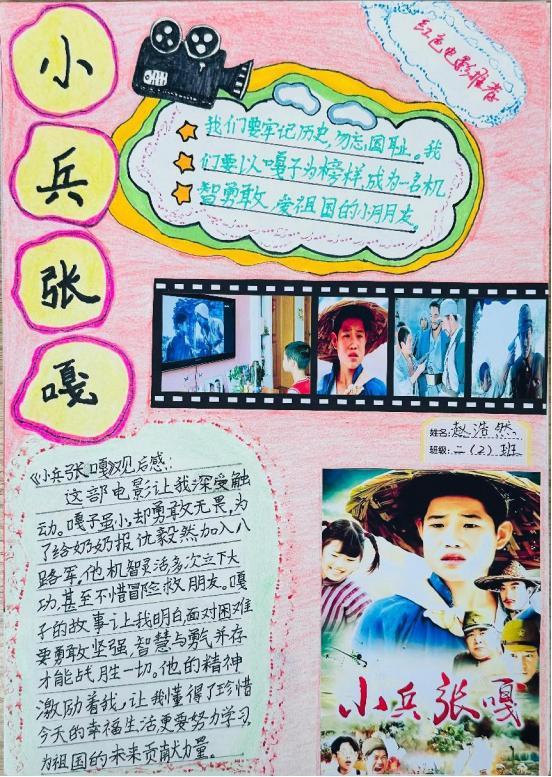 小
兵
张
嘎
红色电影推荐
我们要牢记历史,勿忘国耻。我
们要以嘎子为榜样,成为一名机
智勇敢,爱祖国的小朋友。
姓名:赵浩然
班级:二(2)班
《小兵张嘎》观后感
这部电影让我深受触
动。嘎子虽小,却勇敢无畏,为
了给奶奶报仇毅然加入八
路军,他机智灵活多次立下大
功,甚至不惜冒险救朋友。嘎
子的故事让我明白面对困难
要勇敢坚强,智慧与勇气并存
才能战胜一切。他的精神
激励着我,让我懂得了珍惜
今天的幸福生活更要努力学习,
为祖国的未来贡献力量。
小兵张嘎